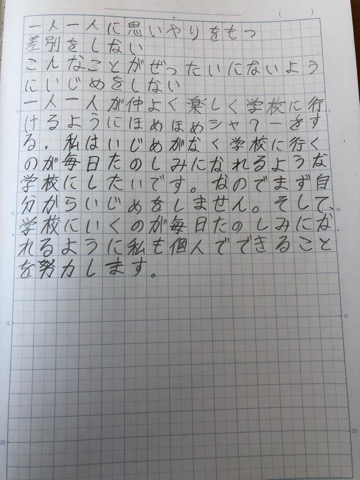 一人一人に思いやりをもつ
差別をしない
こんなことがぜったいにないよう
にいじめをしない
一人一人が仲よく楽しく学校に行
けるようにほめほめシャワーをす
る。私はいじめがなく学校に行く
のが毎日たのしみになれるような
学校にしたいです。なのでまず自
分からいじめをしません。そして、
学校にいくのが毎日たのしみにな
れるように私も個人でできること
を努力します。